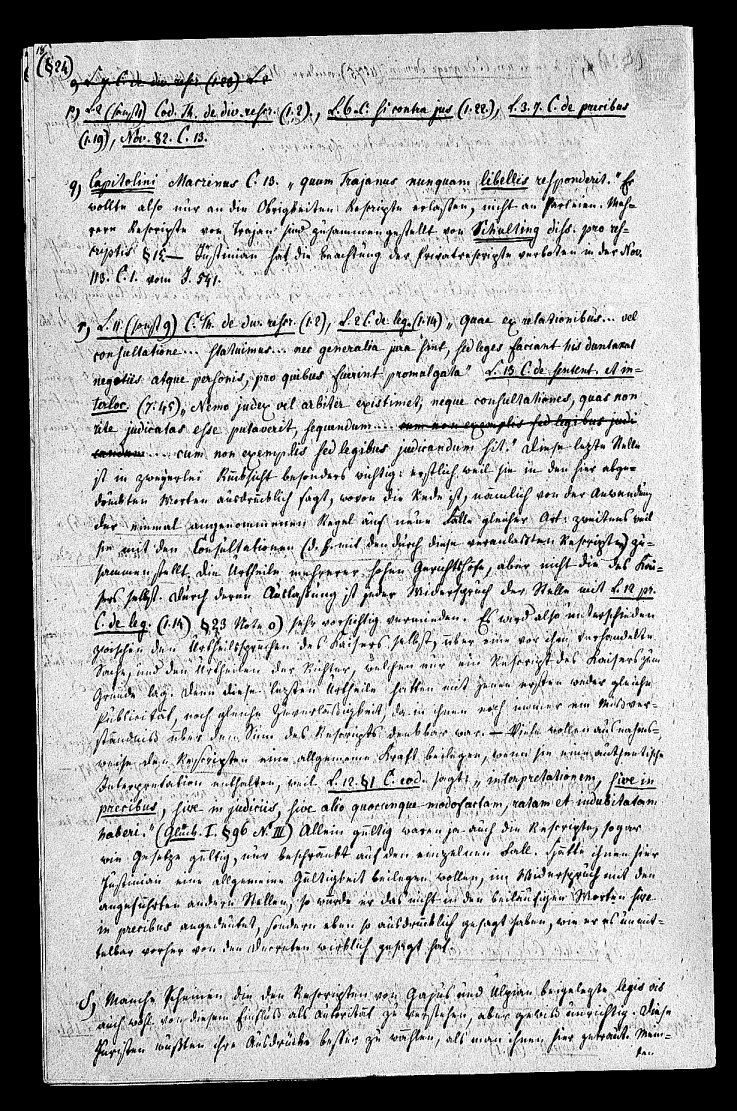 (§24)
L. 7. C. de div. rescr. (1.23) L. 2
p) L. 2 (sonst 1) Cod. Th. de div. rescr. (1.2)., L. 6. C. si contra jus (1.22.), L. 3. 7. C. de precibus
(1.19), Nov. 82. C. 13.
q) Capitolini Macrinus C. 13. „quum Trajanus nunquam libellis responderit." Er
wollte also nur an die Obrigkeiten Rescripte erlassen, nicht an Parteien. Meh-
rere Rescripte von Trajan sind zusammengestellt von Schulting diss. pro res-
criptis § 15 — Justinian hat die Beachtung der Privatrescripte verboten in der Nov.
113. C. 1. vom J. 541.
r) L. 11. (sonst 9) C. Th. de div. rescr. (1.2), L. 2 C. de leg. (1.14) „Quae ex relationibus... vel
consultatione... statuimus... nec generalia jura sint, sed leges faciant his duntaxat
negotiis atque personis, pro quibus fuerint promulgata" L. 13 C. de sentent. et in-
terloc. (7.45) „Nemo judex vel arbiter existimet, neque consultationes, quas non
rite judicatas esse putaverit, sequendum... cum non exemplis sed legibus judi
candum.... cum non exemplis sed legibus judicandum sit." Diese letzte Stelle
ist in zweyerlei Rücksicht besonders wichtig: erstlich weil sie in den hier abge-
druckten Worten ausdrücklich sagt, wovon die Rede ist, nämlich von der Anwendung
der einmal angenommenen Regel auf neue Fälle gleicher Art: zweitens weil
sie mit den Consultationen (d. h. mit den durch diese veranlaßten Rescripten) zu-
sammen stellt die Urtheile mehrerer hohen Gerichtshöfe, aber nicht die des Kai-
sers selbst. Durch deren Auslassung ist jeder Widerspruch der Stelle mit L. 12 pr.
C. de leg. (1.14) §23 Note o) sehr vorsichtig vermieden. Es wird also unterschieden
zwischen den Urtheilssprüchen des Kaisers selbst, über eine vor ihm verhandelte
Sache, und den Urtheilen der Richter, welchen nur ein Rescript des Kaisers zum
Grunde lag. Denn diese letzten Urtheile hatten mit jenen ersten weder gleiche
Publicität, noch gleiche Zuverlässigkeit, da in ihnen noch immer ein Misver-
ständniß über den Sinn des Rescripts denkbar war. — Viele wollen ausnahms-
weise den Rescripten eine allgemeine Kraft beilegen, wenn sie eine authentische
Interpretation enthalten, weil L. 12 §1 C. eod. sagt: „interpretationem, sive in
precibus, sive in judiciis, sive alio quocunque modo factam, ratam et indubitatam
haberi." (Glück I. §96 N. III) Allein gültig waren ja auch die Rescripte, sogar
wie Gesetze gültig, nur beschränkt auf den einzelnen Fall. Hätte ihnen hier
Justinian eine allgemeine Gültigkeit beilegen wollen, im Widerspruch mit den
angeführten andern Stellen, so würde er das nicht in den beiläufigen Worten sive
in precibus angedeutet, sondern eben so ausdrücklich gesagt haben, wie er es unmit-
telbar vorher von den Decreten wirklich gesagt hat.
s) Manche scheinen die den Rescripten von Gajus und Ulpian beigelegte legis vis
auch wohl von diesem Einfluß als Autorität zu verstehen, aber gewiß unrichtig. Diese
Juristen wußten ihre Ausdrücke besser zu wählen, als man ihnen hier zutraut.